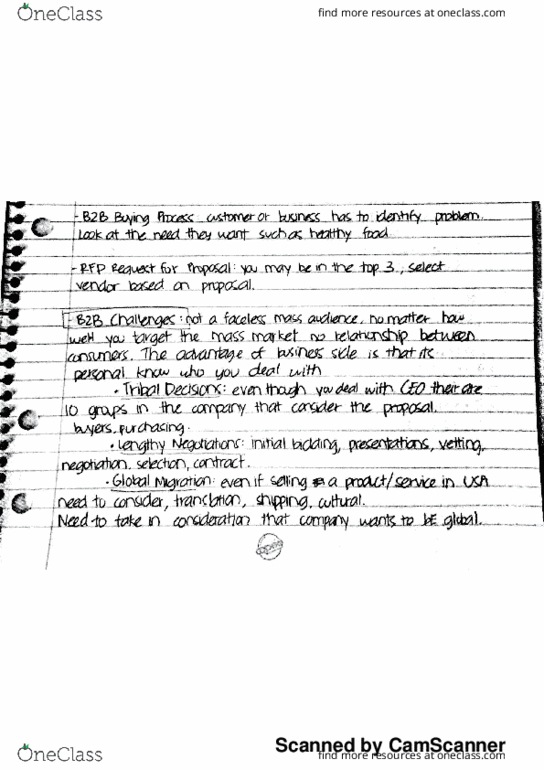 OneClass
find more resources at oneclass.com
- B2B Buying Process: customer or business has to identify problem.
Look at the need they want such as healthy food
- RFP Request for Proposal: you may be in the top 3, select
vendor based on proposal.
- B2B Challenges: not a faceless mass audience, no matter how
well you target the mass market no relationship between
consumers. The advantage of business side is that its
personal know who you deal with
• Tribal Decisions: even though you deal with CEO their are
10 groups in the company that consider the proposal.
buyers, purchasing.
• Lengthy Negotiations: initial bidding, presentations, vetting,
negotiation, selection, contract.
• Global Migration: even if selling a product/service in USA
need to consider, translation, shipping, cultural.
Need to take in consideration that company wants to bE global.
Scanned by CamScanner
OneClass
find more resources at oneclass.com